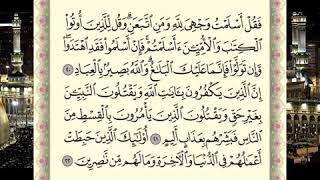 فَقُلْ أَسْلَمْتُ وَجْهِيَ لِلَّهِ وَمَنِ اتَّبَعَنِ وَقُل لِّلَّذِينَ أُوتُوا
الْكِتَابَ وَالْأُمِّيِّينَ ءَأَسْلَمْتُمْ فَإِنْ أَسْلَمُوا فَقَدِ اهْتَدَوا
وَّإِن تَوَلَّوْا فَإِنَّمَا عَلَيْكَ الْبَلَاغُ وَاللَّهُ بَصِيرٌ بِالْعِبَادِ ٢٠
إِنَّ الَّذِينَ يَكْفُرُونَ بِآيَاتِ اللَّهِ وَيَقْتُلُونَ النَّبِيِّينَ
بِغَيْرِ حَقٍّ وَيَقْتُلُونَ الَّذِينَ يَأْمُرُونَ بِالْقِسْطِ مِنَ
النَّاسِ فَبَشِّرْهُم بِعَذَابٍ أَلِيمٍ ٢١ أُولَٰئِكَ الَّذِينَ حَبِطَتْ
أَعْمَالُهُمْ فِي الدُّنْيَا وَالْآخِرَةِ وَمَا لَهُم مِّن نَّاصِرِينَ ٢٢